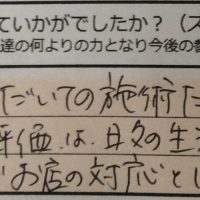 ていかがでしたか？（ス
達の何よりの力となり今後の参
だいての施術た
評価は、日々の生活
お店の対応とし